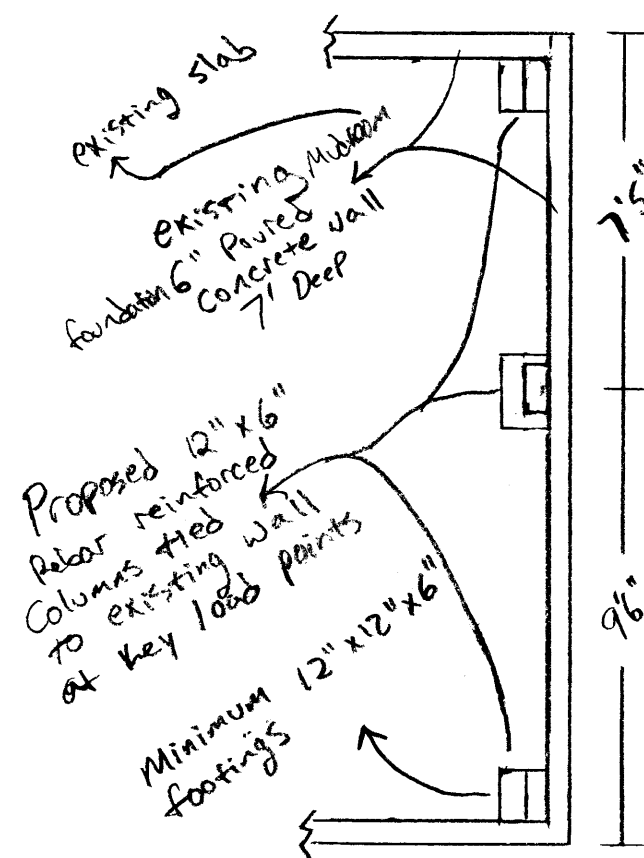 existing slab
existing Mudroom
foundation 6" Poured
concrete wall
7' Deep
7'5"
Proposed 12" x 6"
Rebar reinforced
Columns tied
to existing wall
at key load points
9'6"
Minimum 12" x 12" x 6"
footings